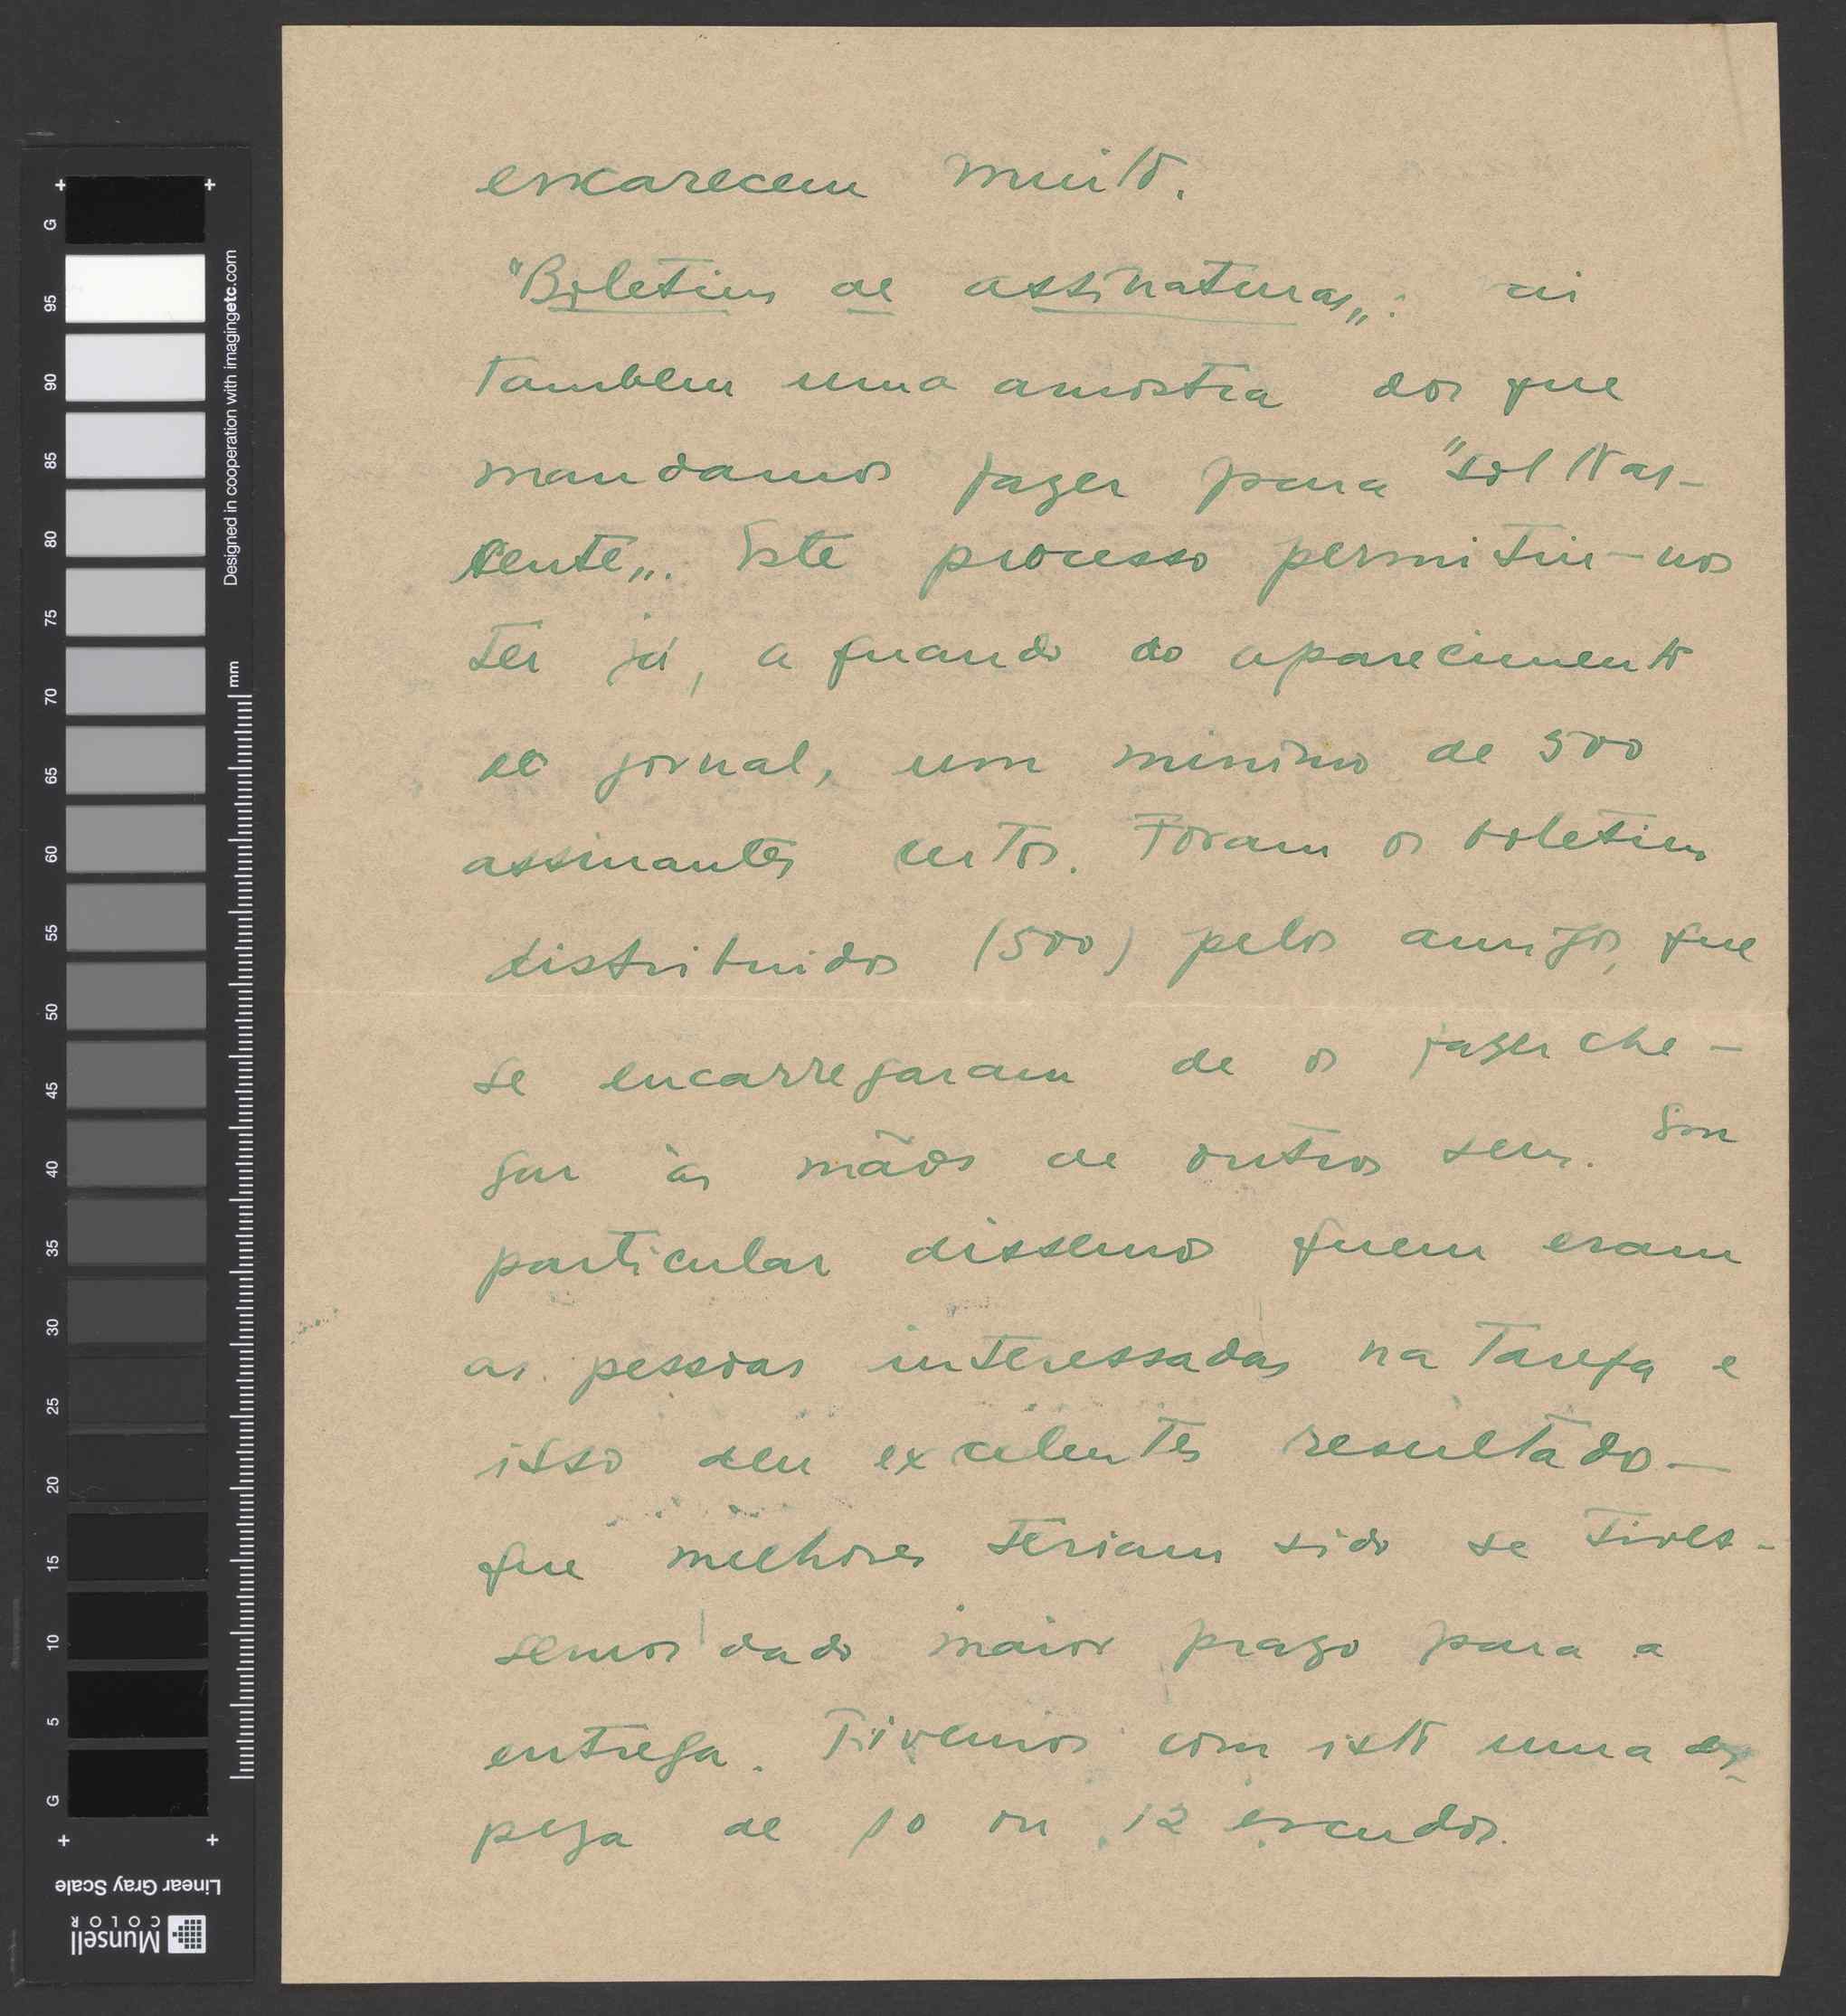 encarecem muito.
"Boletim de assinaturas„: ai
tambem uma amostra dos que
mandamos fazer para "Sol Nas-
cente„. Este processo permitiu-nos
ter já, a quando do aparecimento
do jornal, um minimo de 500
assinantes certos. Foram os boletins
distribuidos (500) pelos amigos, que
se encarregaram de os fazer che-
gar ás mãos de outros seus. Em
particular dissemos quem eram
as pessoas interessadas na tarefa e
isso deu excelentes resultados—
que melhores teriam sido se tives-
semos dado maior prazo para a
entrega. Tivemos com isto uma des-
peza de 10 ou 12 escudos.
G
95
90
85
80
75
70
65
60
55
50
45
40
35
30
25
20
15
10
5
G
mm
Designed in cooperation with imagingetc.com
Linear Gray Scale
Munsell
COLOR